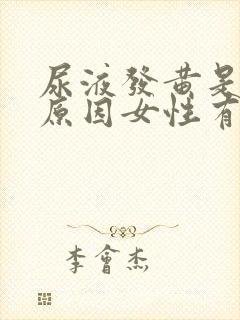 尿液發黃是
原因女性有
李會杰